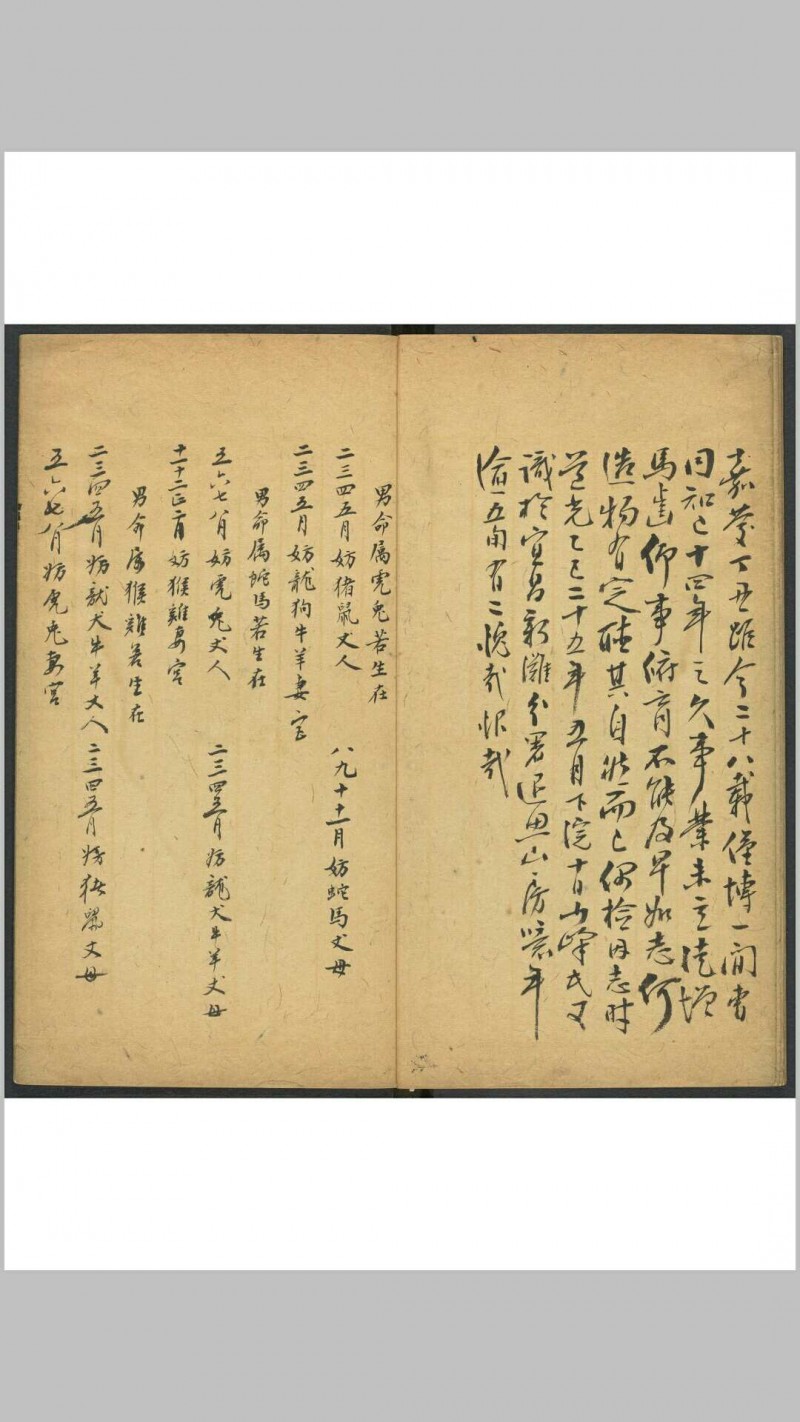 嘉慶丁丑距今二十八載僅博一閒曹
同知已十四年之久事業未立徒增
馬齒仰事俯育不能及早如志何
造物有定聽其自然而已偶檢因志時
道光乙巳二十五年五月下浣十日山峰氏又
識於宜昌新灘分署退思山房時年
逾五旬有二愧哉恨哉
男命属虎兔若生在
二三四五月妨猪鼠丈人 八九十十一月妨蛇馬丈母
二三四五月妨龍狗牛羊妻宫
男命属蛇馬若生在
五六七八月妨虎兔丈人 二三四五月妨龍犬牛羊丈母
十一十二正二月妨猴雞妻宫
男命属猴雞若生在
二三四五月妨龍犬牛羊丈人 二三四五月妨猪鼠丈母
五六七八月妨虎兔妻宫